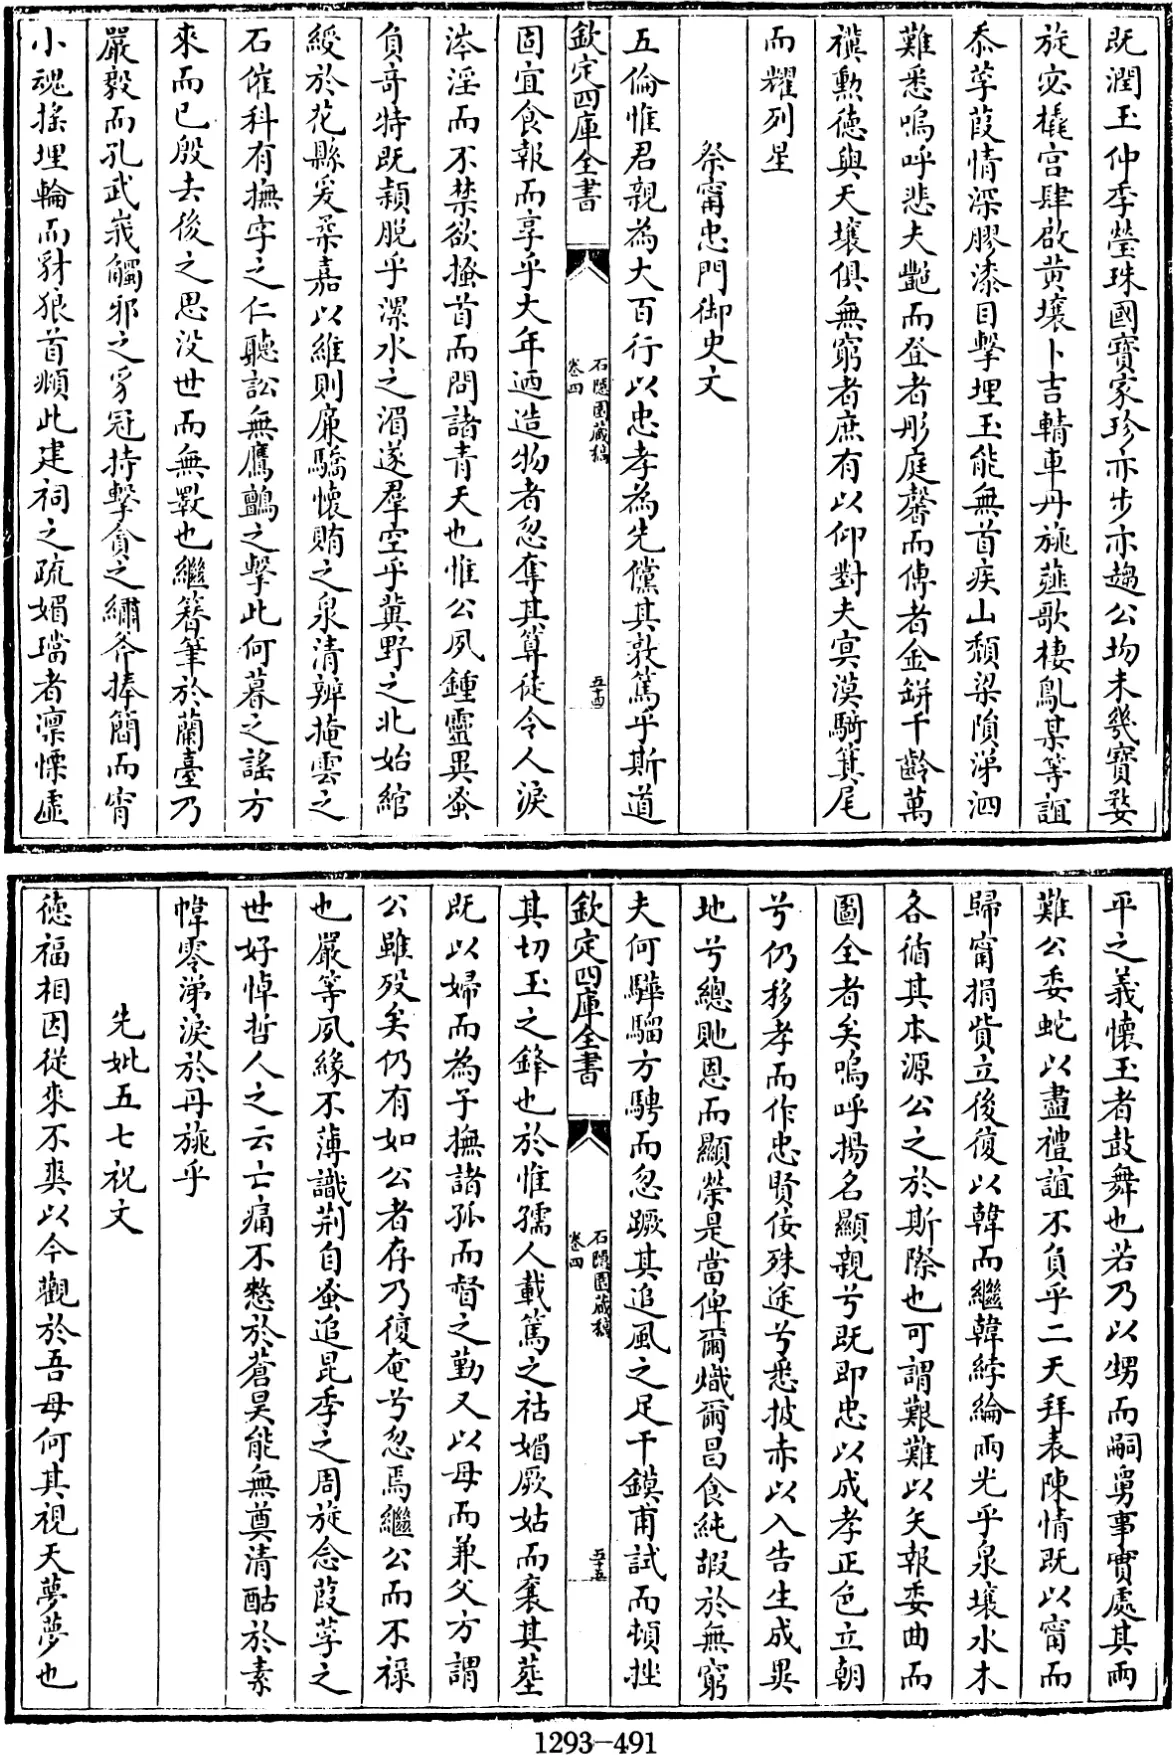 既潤玉仲季瑩珠國寶家珍亦步亦趨公均未幾寶婺
旋宓橇宫肆啟黄壤卜吉輤車丹旐薤歌棲鳬某等誼
忝莩葭情深膠漆目擊埋玉能無首疾山頽梁隕涕泗
難悉嗚呼悲夫豔而登者彤庭馨而傳者金缾千齡萬
禩勲徳與天壤俱無窮者庶有以仰對夫㝠漠騎箕尾
而耀列星
祭甯忠門御史文
五倫惟君親為大百行以忠孝為先儻其敦篤乎斯道
欽定四庫全書
石隠園藏稿
卷四
五十四
固宜食報而享乎大年迺造物者忽奪其算徒令人淚
涔淫而不禁欲搔首而問諸青天也惟公夙鍾靈異蚤
負奇特既頴脱乎漯水之湄遂羣空乎冀野之北始綰
綬於花縣爰柔嘉以維則廉驕懐賄之泉清辨掩雲之
石催科有撫字之仁聽訟無鷹鸇之擊此何暮之謡方
來而已殷去後之思没世而無斁也繼簪筆於蘭臺乃
嚴毅而孔武峩觸邪之豸冠持擊貪之繡斧捧簡而宵
小魂搖埋輪而豺狼首頫此建祠之疏媚璫者凛慄虚
平之義懐玉者鼓舞也若乃以甥而嗣舅事實處其兩
難公委蛇以盡禮誼不負乎二天拜表陳情既以甯而
歸甯捐貲立後復以韓而繼韓綍綸兩光乎泉壤水木
各循其本源公之於斯際也可謂艱難以矢報委曲而
圖全者矣嗚呼揚名顯親兮既即忠以成孝正色立朝
兮仍移孝而作忠賢佞殊途兮悉披赤以入告生成異
地兮總貤恩而顯榮是當俾爾熾爾昌食純嘏於無窮
夫何驊騮方騁而忽蹶其追風之足干鏌甫試而頓挫
欽定四庫全書
石隠園藏稿
卷四
五十五
其切玉之鋒也於惟孺人載篤之祜媚厥姑而襄其塟
既以婦而為子撫諸孤而督之勤又以母而兼父方謂
公雖殁矣仍有如公者存乃復奄兮忽焉繼公而不禄
也嚴等夙緣不薄識荆自蚤追昆季之周旋念葭莩之
世好悼哲人之云亡痛不憖於蒼昊能無奠清酤於素
幃零涕淚於丹旐乎
先妣五七祝文
徳福相因從來不爽以今觀於吾母何其視天夢夢也
1293-491